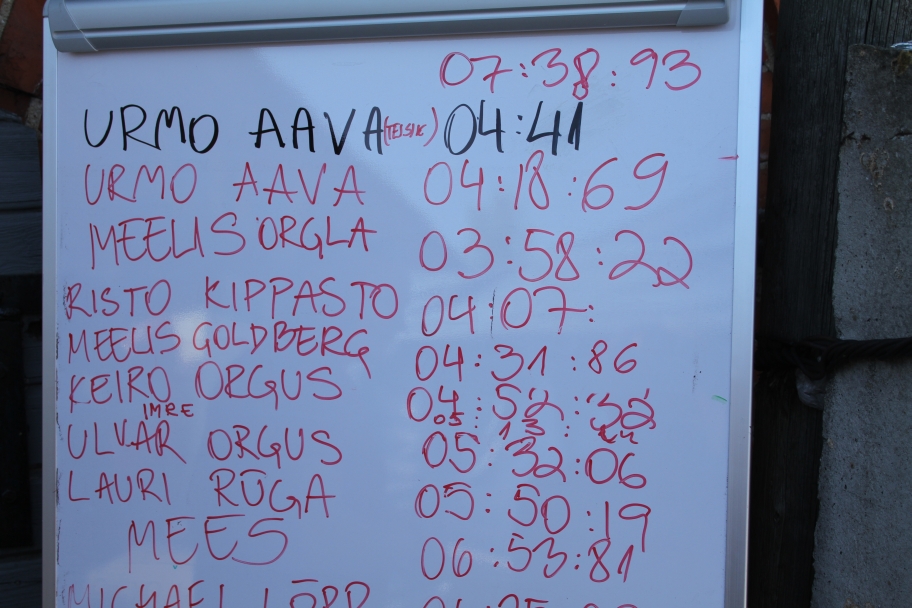 07:38:93
URMO AAVA (TELSIK) 04:41
URMO AAVA 04:18:69
MEELIS ORGLA 03:58:22
RISTO KIPPASTO 04:07:
MEELIS GOLDBERG 04:31:86
KEIRO ORGUS 04:52:32
IMRE 05:13:
ULVAR ORGUS 05:32:06
LAURI RŪGA 05:50:19
MEES 06:53:81
MICHAEL LÕPP